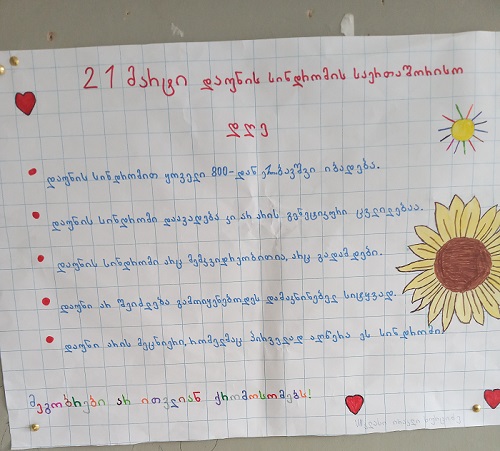 21 მარტი დაუნის სინდრომის საერთაშორისო
დღე
დაუნის სინდრომით ყოველი 800-დან ერთი ბავშვი იბადება.
დაუნის სინდრომი დაავადება კი არ არის გენეტიკური ცვლილებაა.
დაუნის სინდრომი არც მემკვიდრეობითია, არც გადამდები.
დაუნი არ შეიძლება გამოიყენებოდეს დამაკნინებელ სიტყვად.
დაუნი არის მეცნიერი, რომელმაც პირველად აღწერა ეს სინდრომი
მეგობრები არ ითვლიან ქრომოსომებს!